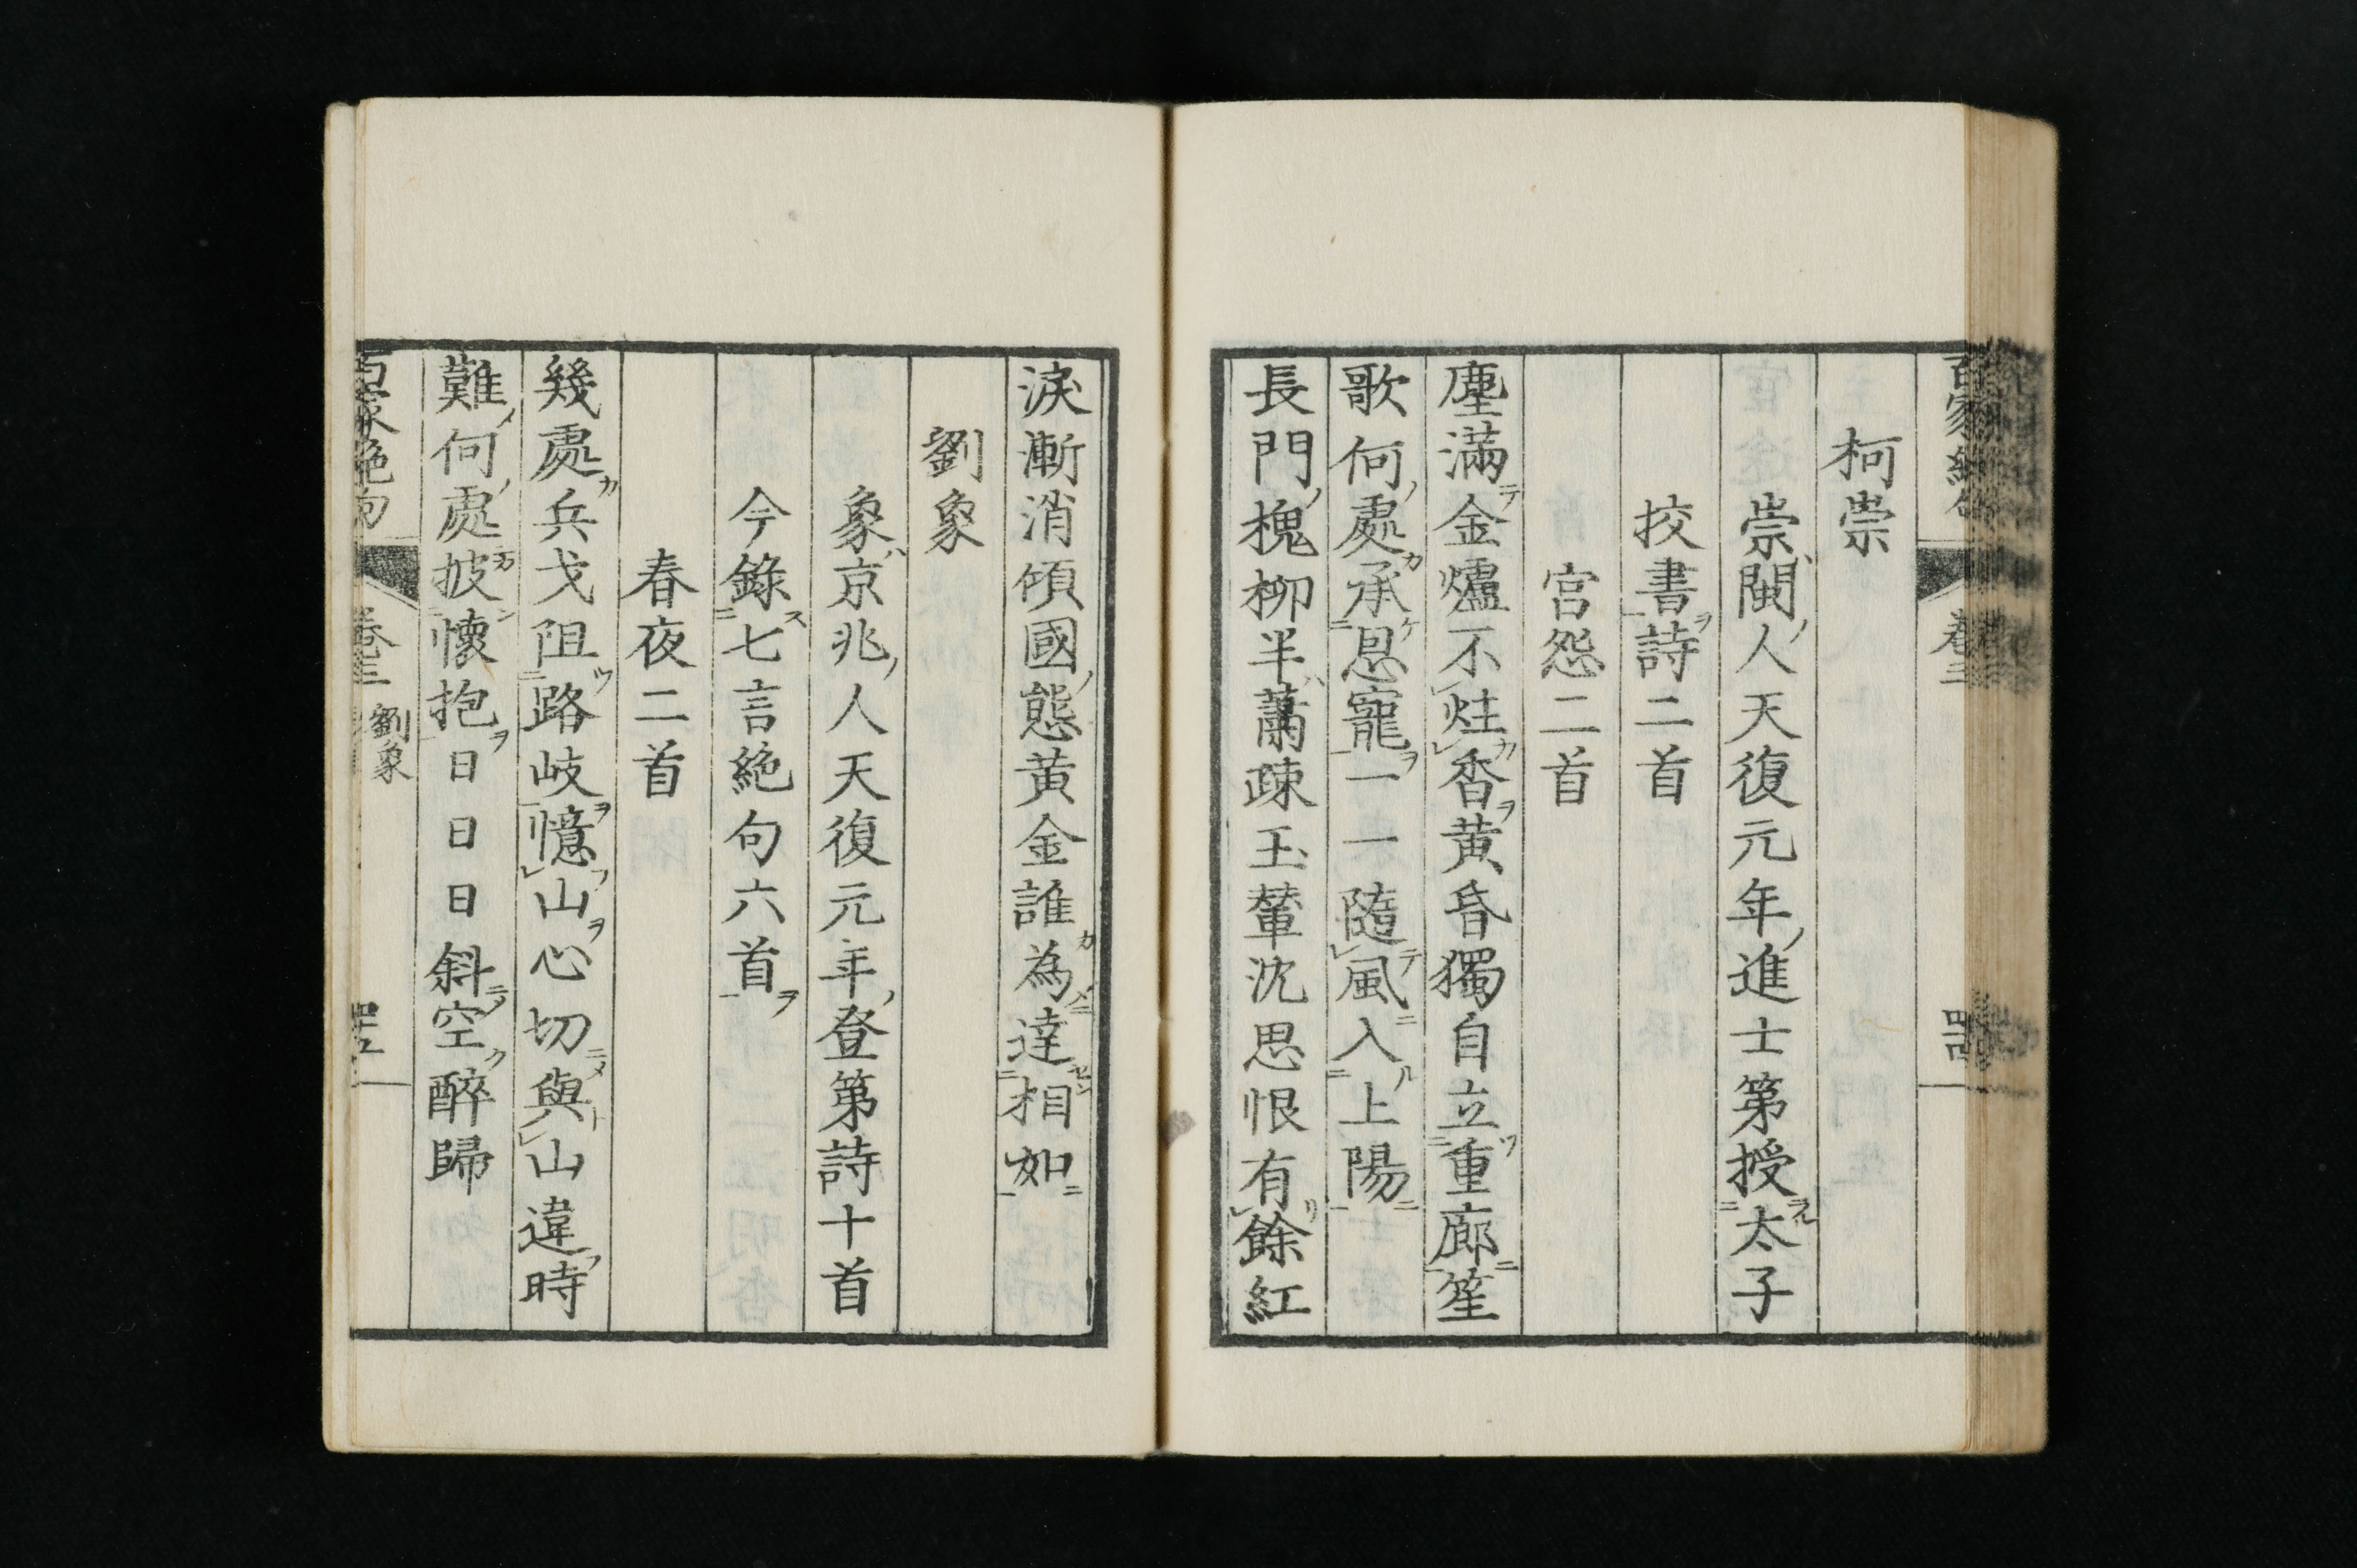 柯崇
崇閩人天復元年進士第授太子
挍書詩二首
宮怨二首
塵滿金爐不炷香黄昏獨自立重廊笙
歌何處承恩寵一一隨風入上陽
長門槐柳半蕭疎玉輦沈思恨有餘紅
淚漸消傾國態黄金誰為達相如
劉象
象京兆人天復元年登第詩十首
今錄七言絶句六首
春夜二首
幾處兵戈阻路岐憶山心切與山違時
難何處披懷抱日日日斜空醉歸
百家絶句 卷三 劉象